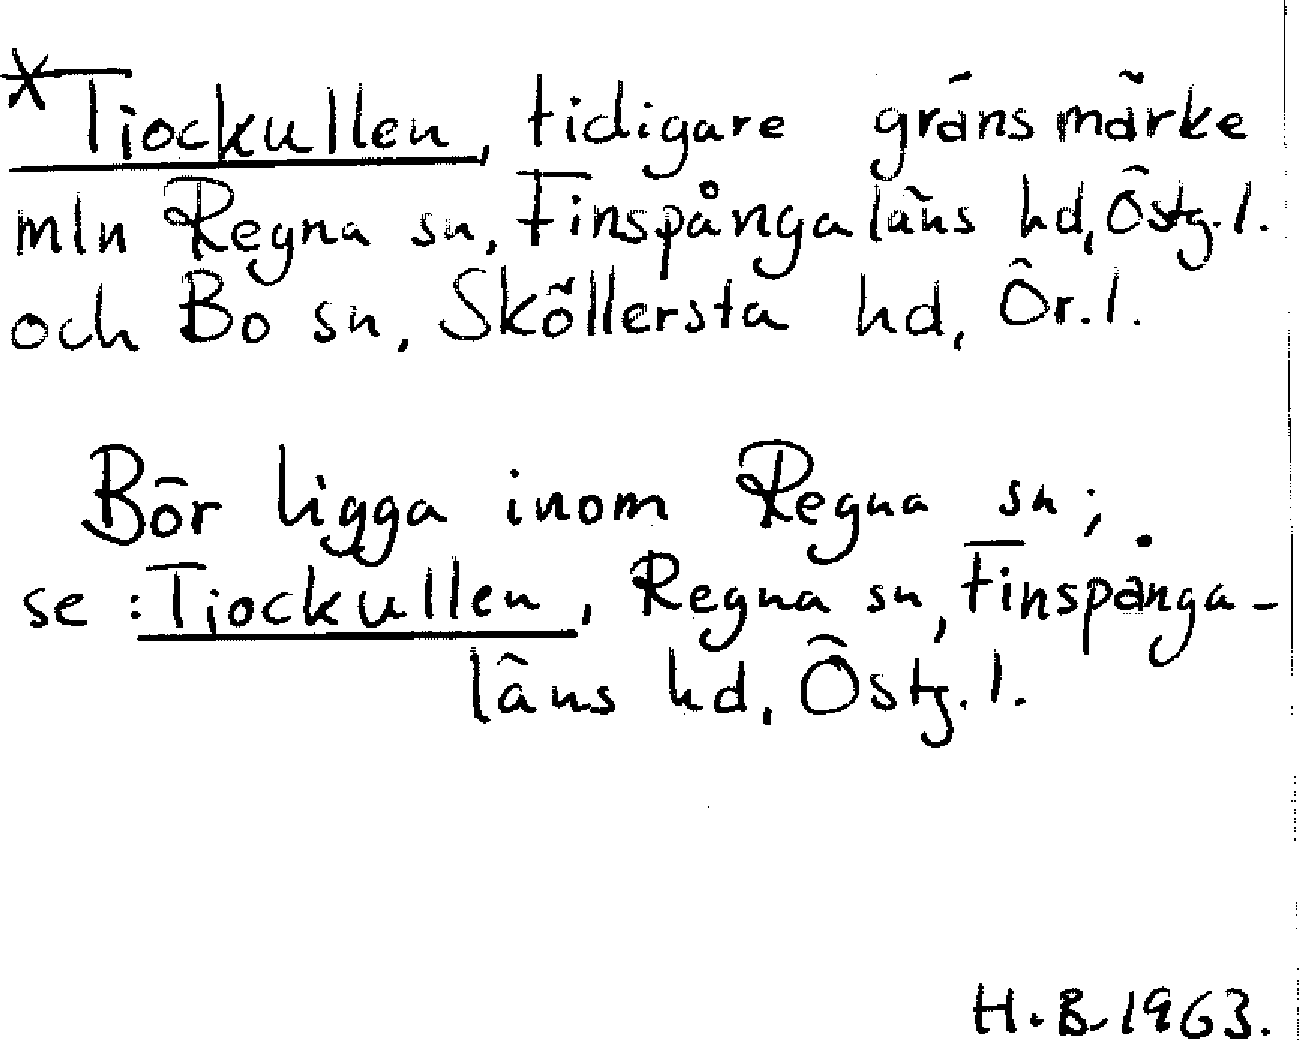 *Tjockullen, tidigare gränsmärke
mln Regna sn, Finspångaläns hd, Östg. l.
och Bo sn, Sköllersta hd, Ör. l.
Bör ligga inom Regna sn;
se: Tjockullen, Regna sn, Finspånga-
läns hd, Östg. l.
H.B. 1963.